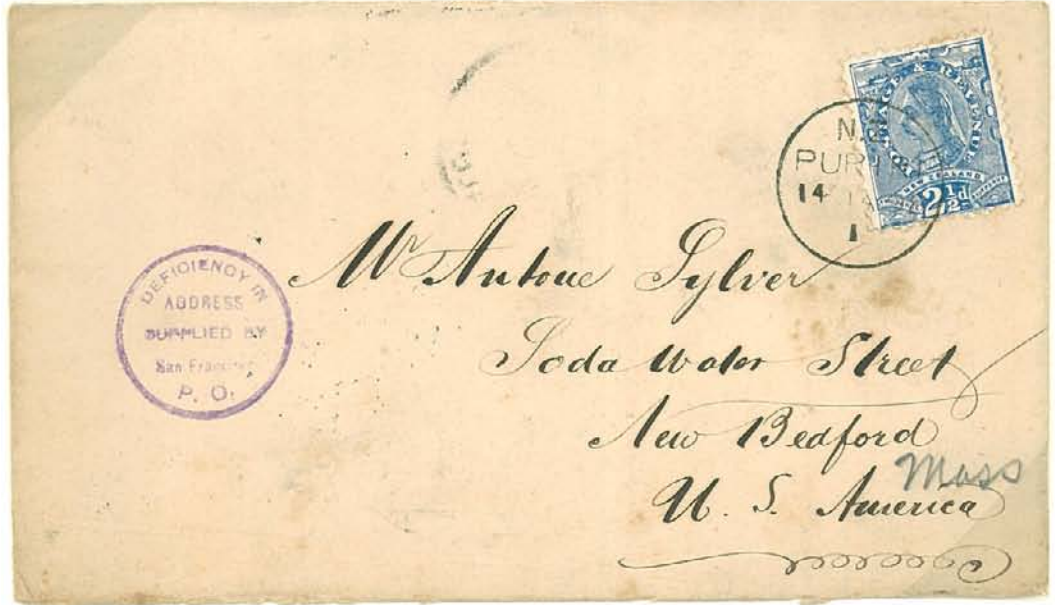 POSTAGE & REVENUE
NEW ZEALAND
2½d
N.Z
14
1
DEFICIENCY IN
ADDRESS
SUPPLIED BY
San Francisco
P. O.
Mr Antone Sylver
Soda Water Street
New Bedford
Mass
U. S. America